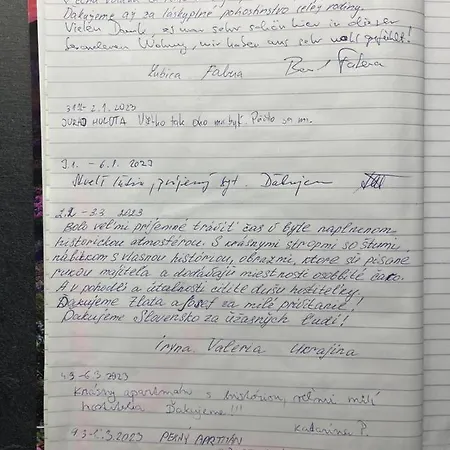 Ďakujeme aj za láskyplné pohostinstvo celej rodiny.
Vielen Dank, es war sehr schön hier in dieser
Wohnung, wir haben uns sehr wohl gefühlt!
Ľubica Fabua
31.12. - 2.1.2023
Všetko tak ako má byť. Páčilo sa mi.
3.1. - 6.1. 2023
byt. Ďakujem
2.2 - 3.3 2023
Bolo veľmi príjemné tráviť čas v byte naplnenom
historickou atmosférou. S krásnymi stropmi so štuami,
nábytkom s vlasnou históriou, obrazmi, ktoré sú písané
rukou majiteľa a dodávajú miestnosti osobité čaro.
A v pohodě a útulnosti cítite dušu hostiteľky.
Ďakujeme Zlata a Josef za milé privítanie!
Ďakujeme Slovensko za úžasných ľudí!
Iryna Valeria Ukrajina
4.3 - 6.3 2023
Krásny apartmán s históriou, veľmi milí
hostitelia Ďakujeme!!!
Katarína P.
PEKNÝ APARTMÁN